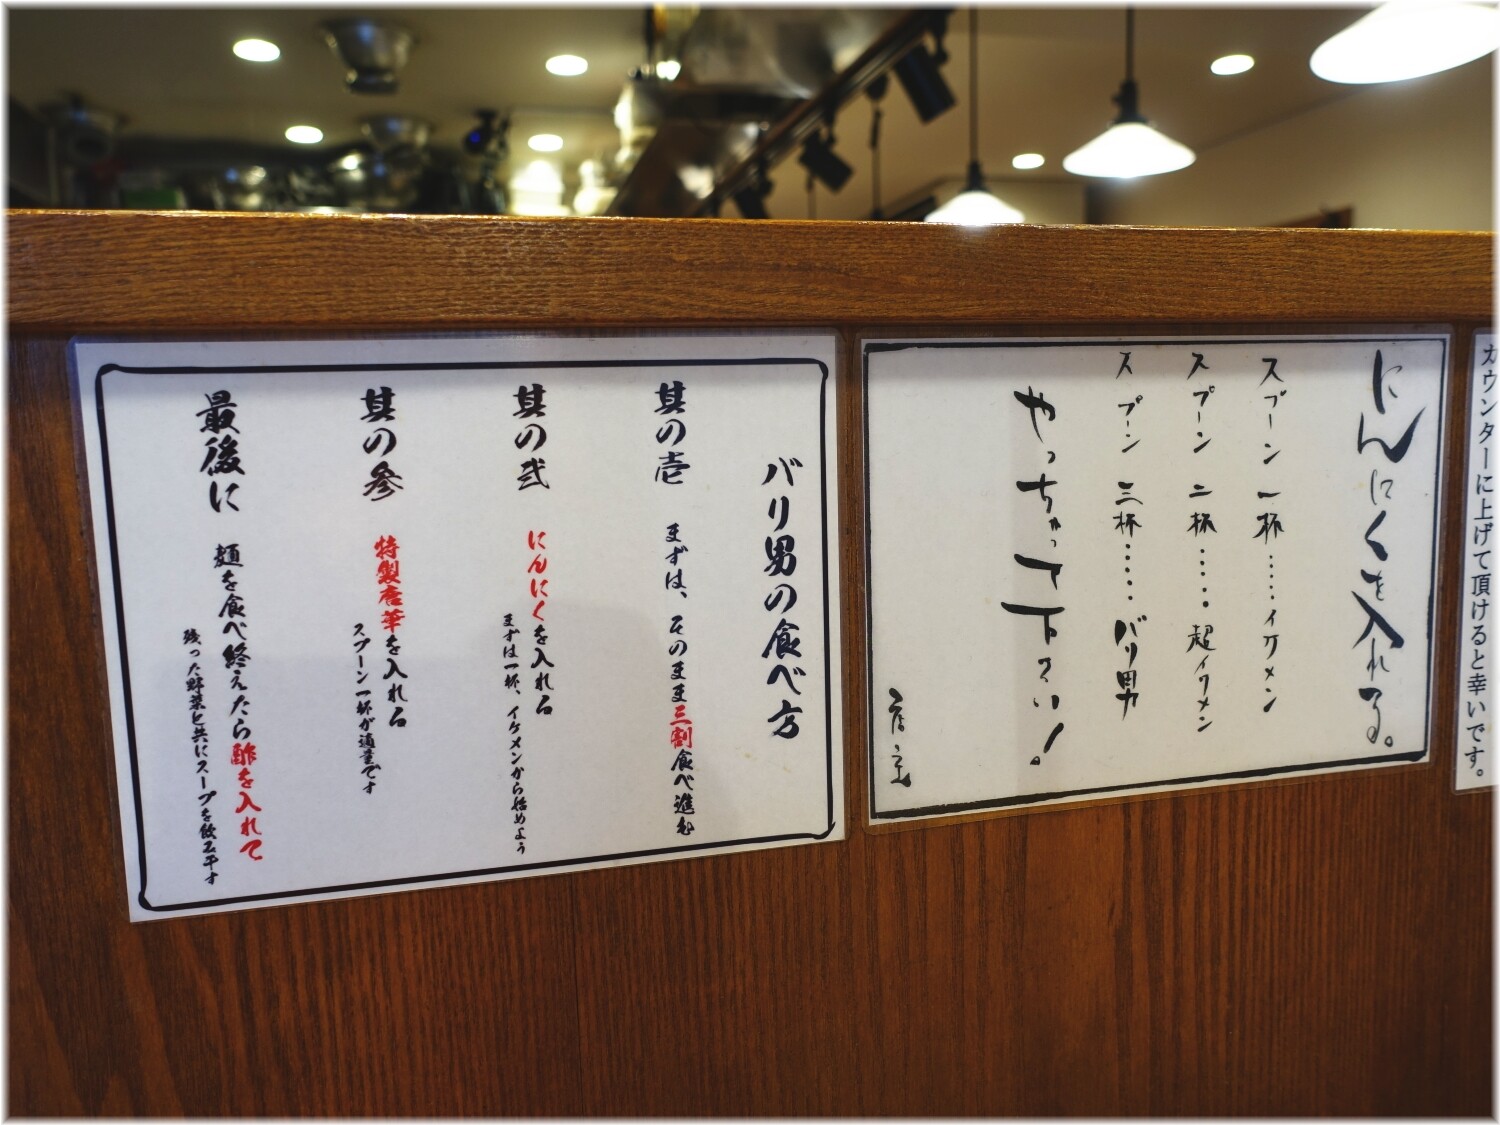 カウンターに上げて頂けると幸いです。
にんにくを入れる。
スプーン一杯……イケメン
スプーン二杯……超イケメン
スプーン三杯……バリ男
やっちゃって下さい!。
店主
バリ男の食べ方
其の壱 まずは、そのまま三割食べ進む
其の弐 にんにくを入れろ
まずは一杯、イケメンから始めよう
其の参 特製唐華を入れろ
スプーン一杯が適量です
最後に 麺を食べ終えたら酢を入れて
残った野菜と共にスープを飲み干す